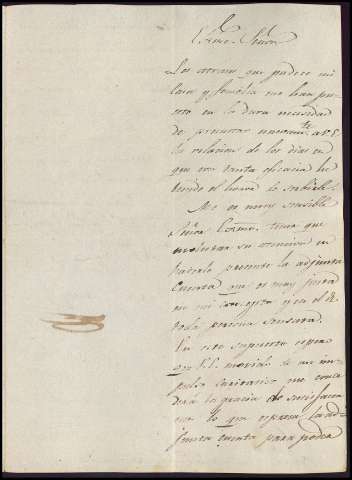 Exmo. Señor
Los atrasos que padece mi
casa y familia me han pues
to en la dura necesidad
de presentar nuevamte. a V.E.
la relacion de los dias en
que con tanta eficacia he
tenido el honor de
Me es muy sensible
Señor Exmo. tener que
molestar su atencion en
hacerle presente la adjunta
Cuenta que es muy justa
en mi concepto y en el de
toda persona sensata.
En este supuesto espero
que V.E. movido de un im
pulso caritativo me conce
derá la gracia de satisfacer
me lo que expresa la ad
junta cuenta para poder